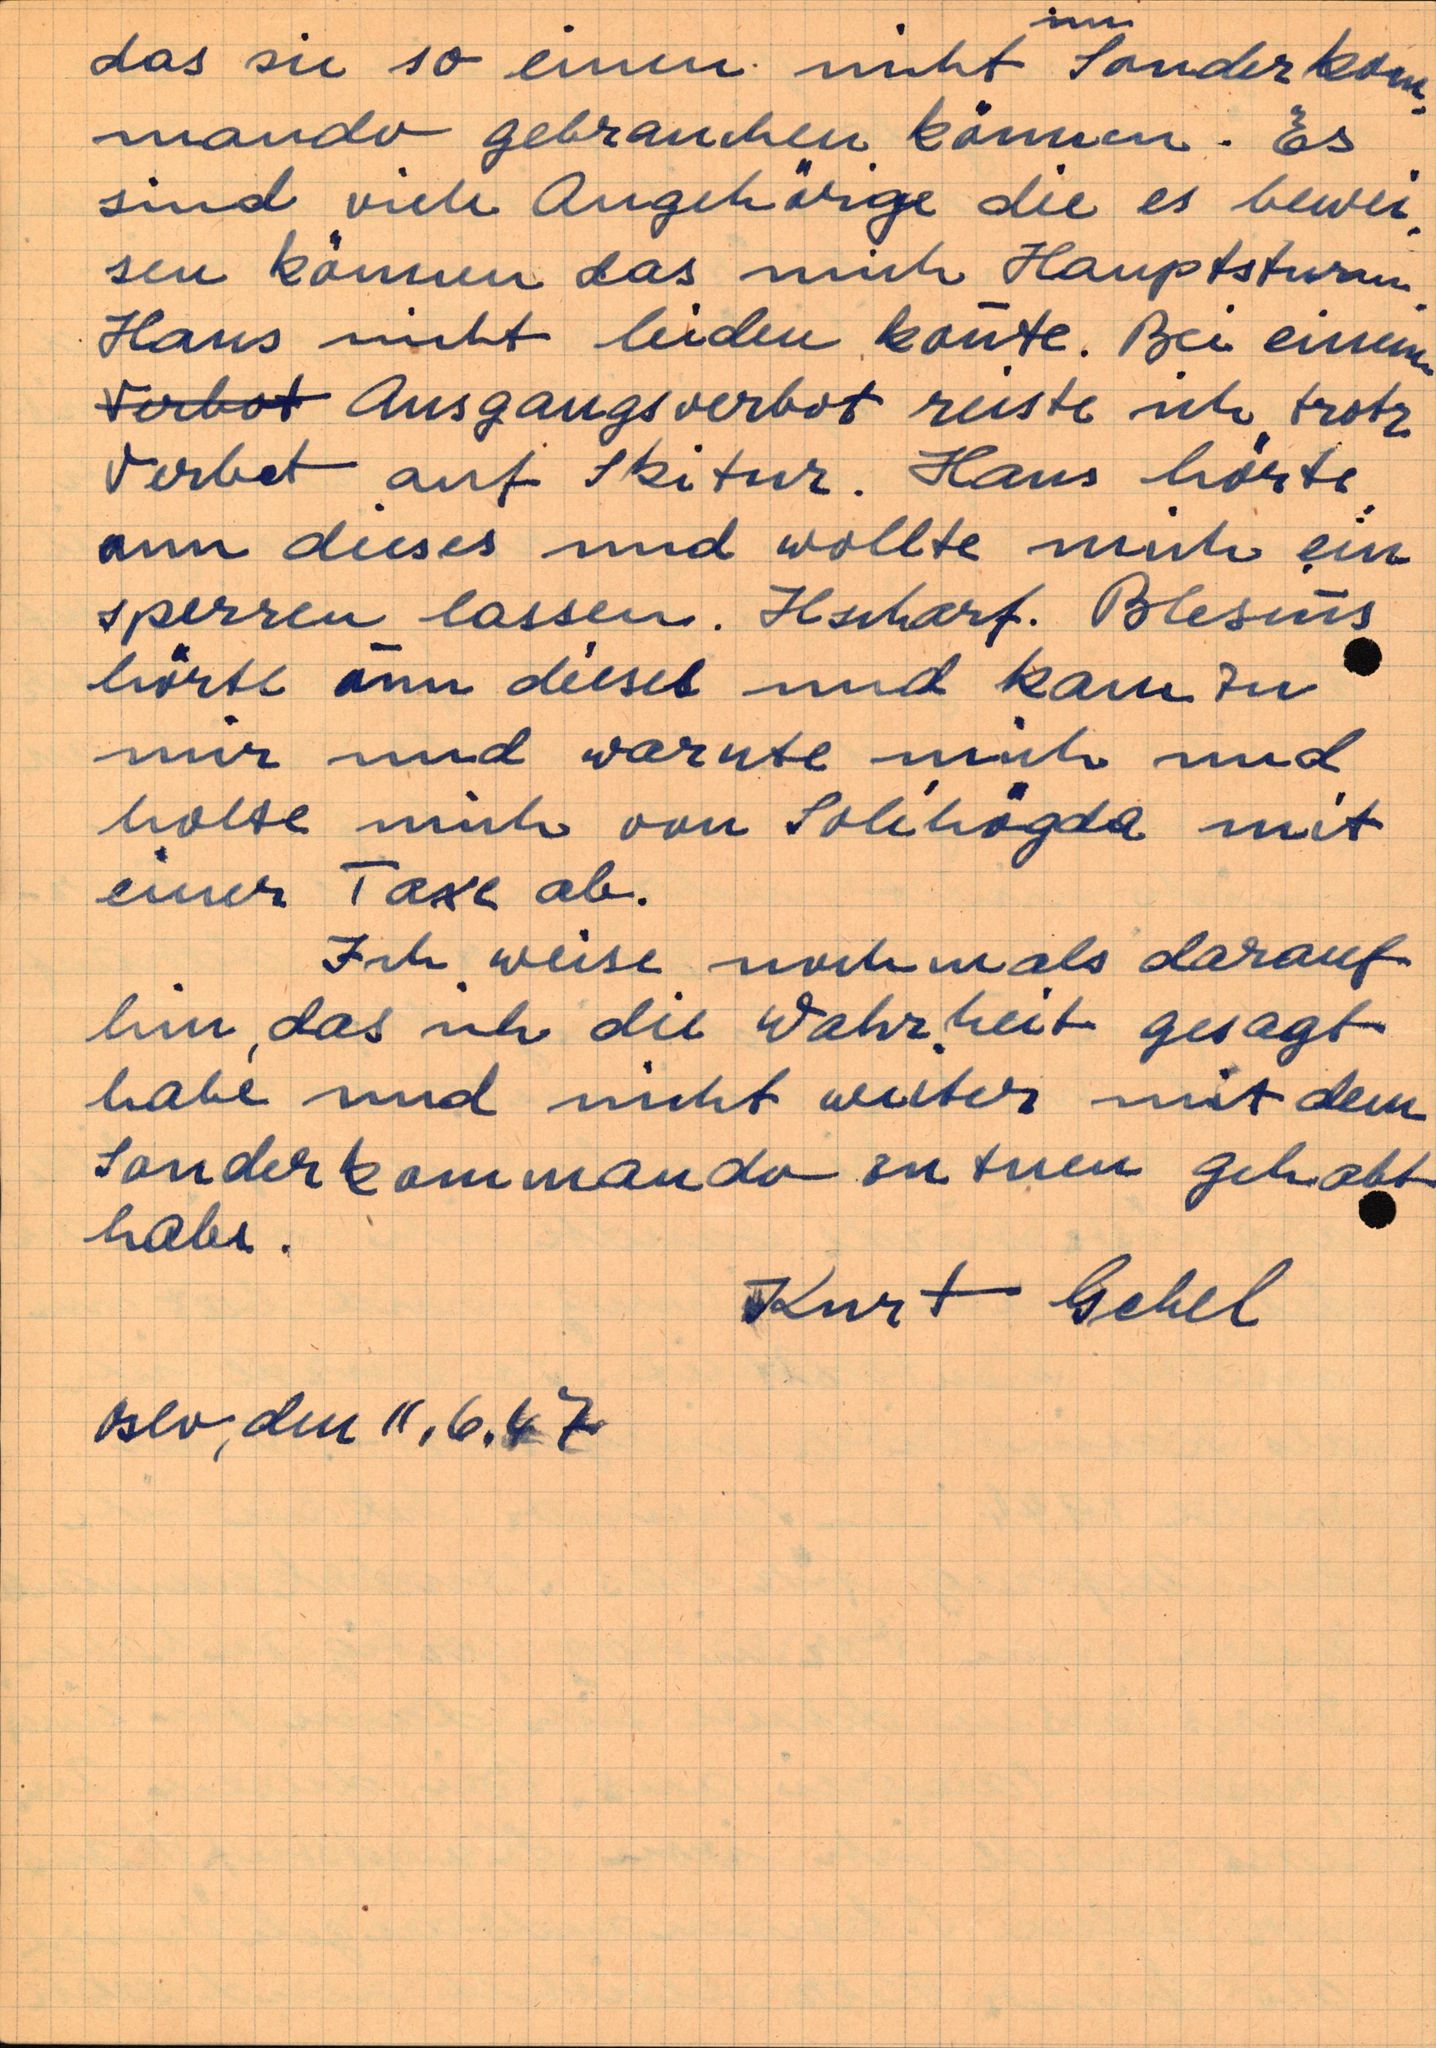 das sie so einen nicht im Sonderkom-
mando gebrauchen können. Es
sind viele Angehörige die es bewei-
sen können das mich Hauptsturm.
Hans nicht leiden kon̄te. Bei einem
Verbot Ausgangsverbot reiste ich trotz
Verbot auf Skitur. Hans hörte
nun dieses und wollte mich ein
sperren lassen. Hscharf. Blesius
hörte nun dieses und kam zu
mir und warnte mich und
holte mich von Solihögda mit
einer Taxe ab.
Ich weise nochmals darauf
hin, das ich die Wahrheit gesagt
habe und nicht weiter mit dem
Sonderkommando zu tuen gehabt
habe.
Kurt Gebel
Oslo, den 11.6.47